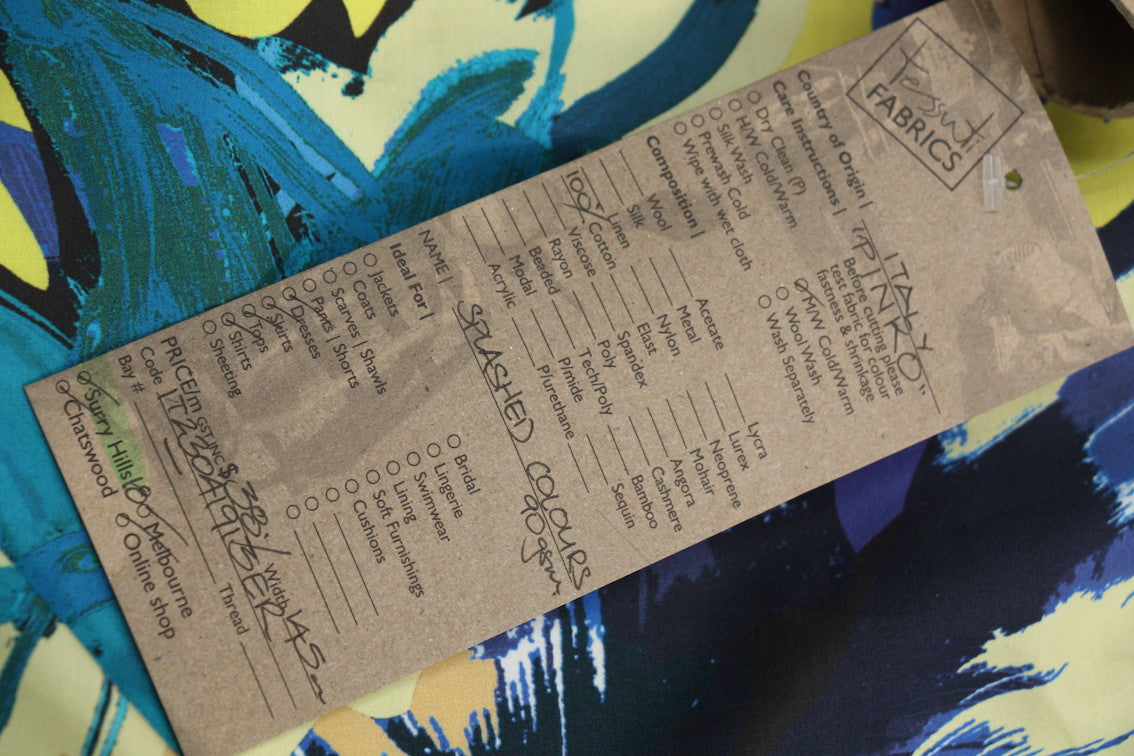 Tessuti
FABRICS
Country of Origin | ITALY
"PINKO"
Care Instructions | Before cutting please
test fabric for colour
fastness & shrinkage
Dry Clean (P)
H/W Cold/Warm
Silk Wash
Prewash Cold
Wipe with wet cloth
M/W Cold/Warm
Wool Wash
Wash Separately
Composition |
Wool
Silk
Linen
100% Cotton
Viscose
Rayon
Beaded
Modal
Acrylic
Acetate
Metal
Nylon
Elast
Spandex
Poly
Tech/Poly
P/mide
P/urethane
Lycra
Lurex
Neoprene
Mohair
Angora
Cashmere
Bamboo
Sequin
NAME | SPLASHED COLOURS
90gsm
Ideal For |
Jackets
Coats
Scarves | Shawls
Pants | Shorts
Dresses
Skirts
Tops
Shirts
Sheeting
Bridal
Lingerie
Swimwear
Lining
Soft Furnishings
Cushions
PRICE/m GST INC $38 Width 145cm
Code
Bay #
Thread
Surry Hills
Melbourne
Chatswood
Online shop